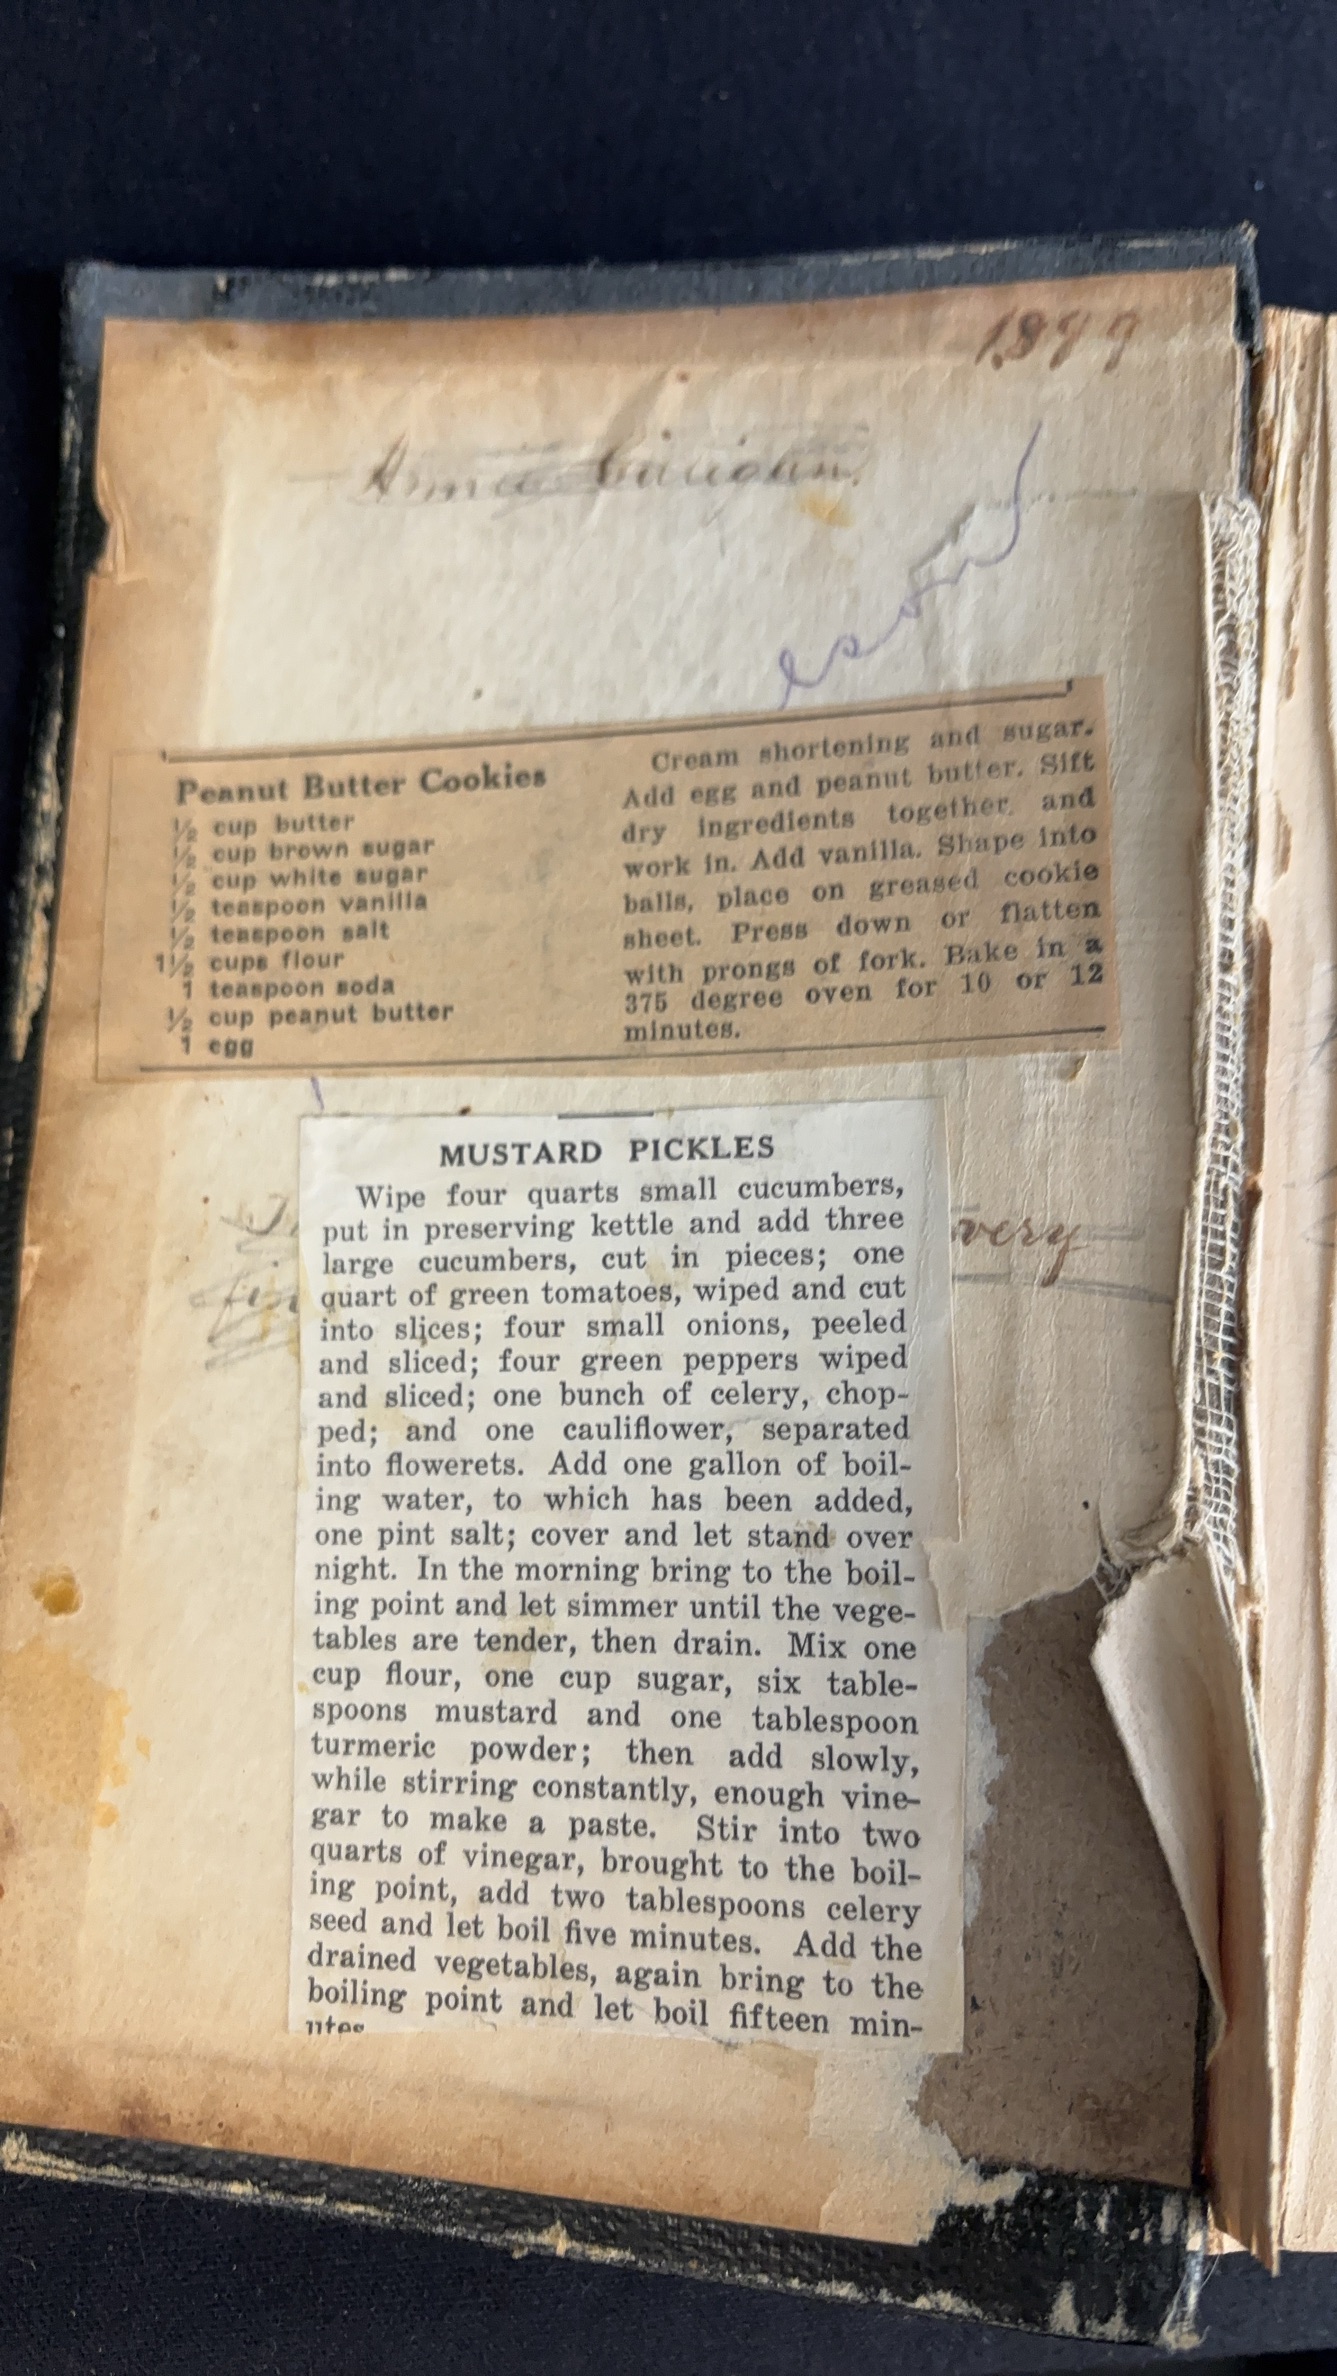 Peanut Butter Cookies
½ cup butter
½ cup brown sugar
½ cup white sugar
½ teaspoon vanilla
½ teaspoon salt
1½ cups flour
1 teaspoon soda
½ cup peanut butter
1 egg
Cream shortening and sugar.
Add egg and peanut butter. Sift
dry ingredients together and
work in. Add vanilla. Shape into
balls, place on greased cookie
sheet. Press down or flatten
with prongs of fork. Bake in a
375 degree oven for 10 or 12
minutes.
MUSTARD PICKLES
Wipe four quarts small cucumbers,
put in preserving kettle and add three
large cucumbers, cut in pieces; one
quart of green tomatoes, wiped and cut
into slices; four small onions, peeled
and sliced; four green peppers wiped
and sliced; one bunch of celery, chop-
ped; and one cauliflower, separated
into flowerets. Add one gallon of boil-
ing water, to which has been added,
one pint salt; cover and let stand over
night. In the morning bring to the boil-
ing point and let simmer until the vege-
tables are tender, then drain. Mix one
cup flour, one cup sugar, six table-
spoons mustard and one tablespoon
turmeric powder; then add slowly,
while stirring constantly, enough vine-
gar to make a paste. Stir into two
quarts of vinegar, brought to the boil-
ing point, add two tablespoons celery
seed and let boil five minutes. Add the
drained vegetables, again bring to the
boiling point and let boil fifteen min-
utes
very